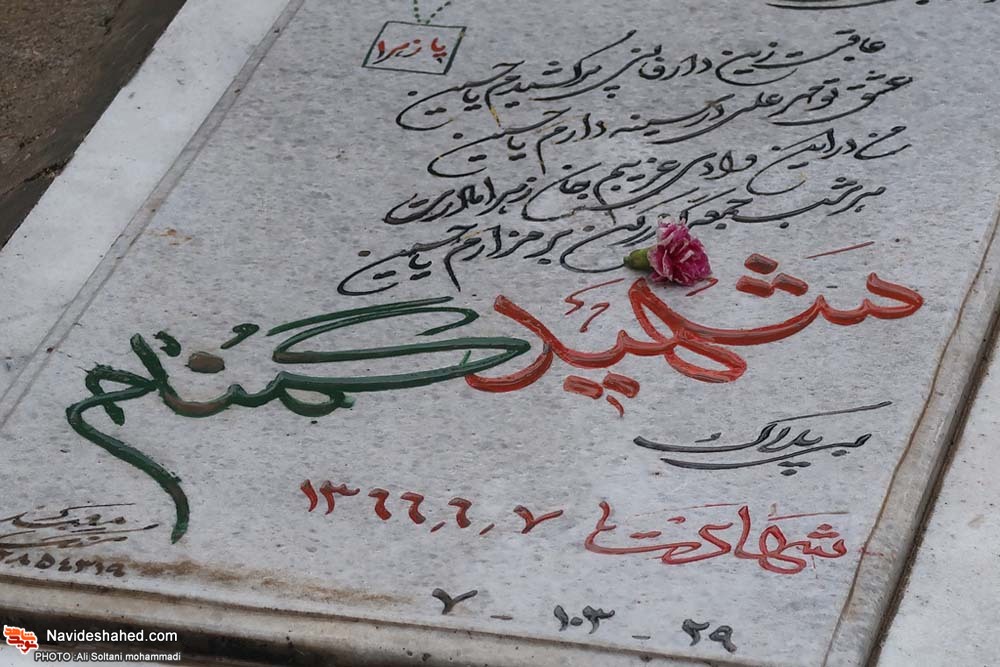 یا زهرا
عاقبت زین دار فانی پر کشیدم یا حسین
عشق تو مهر علی در سینه دارم یا حسین
من در این وادی غریبم جان زهرا مادرت
هر شب جمعه گذر کن بر مزارم یا حسین
شهید گمنام
بی پلاک
شهادت ۱۳۶۶٫۶٫۷
۲۹ - ۱۰۳ - ۷
Navideshahed.com
PHOTO: Ali Soltani mohammadi